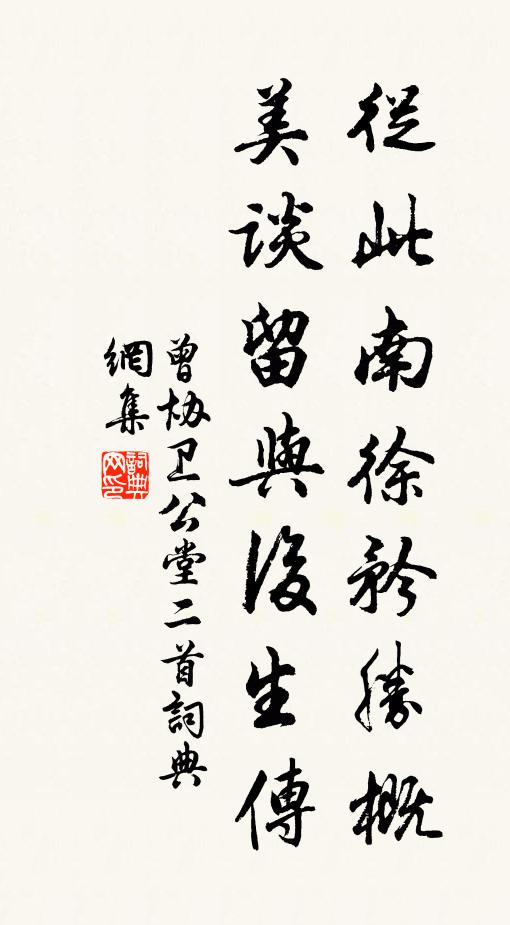 從此南徐矜勝概
美談留與後生傳
曾協卫公堂二首詞典
網集
詞典網印